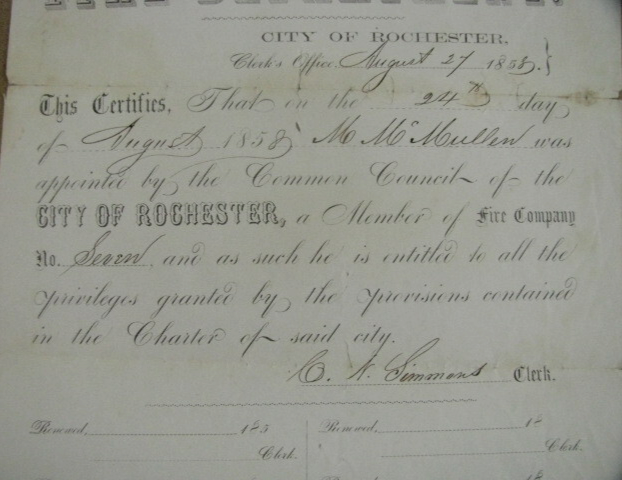 FIRE DEPARTMENT.
CITY OF ROCHESTER,
Clerk's Office, August 27 1858.
This Certifies, That on the 24th day
of August 1858 M McMullen was
appointed by the Common Council of the
CITY OF ROCHESTER, a Member of Fire Company
No. Seven, and as such he is entitled to all the
privileges granted by the provisions contained
in the Charter of said city.
C. N. Simmons Clerk.
Renewed, 185 Renewed, 18
Clerk. Clerk.
18